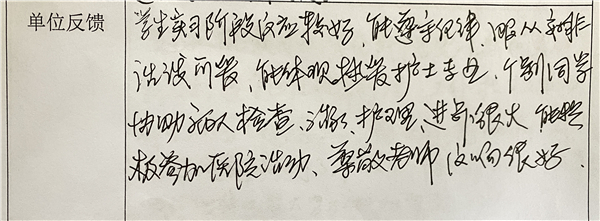 单位反馈
学生实习阶段反应较好,能遵守纪律,服从安排
能体现 护士专业,个别同学
协助病人检查、治疗、护理,进步很大,能积
极参加医院活动、尊敬老师 反响很好.